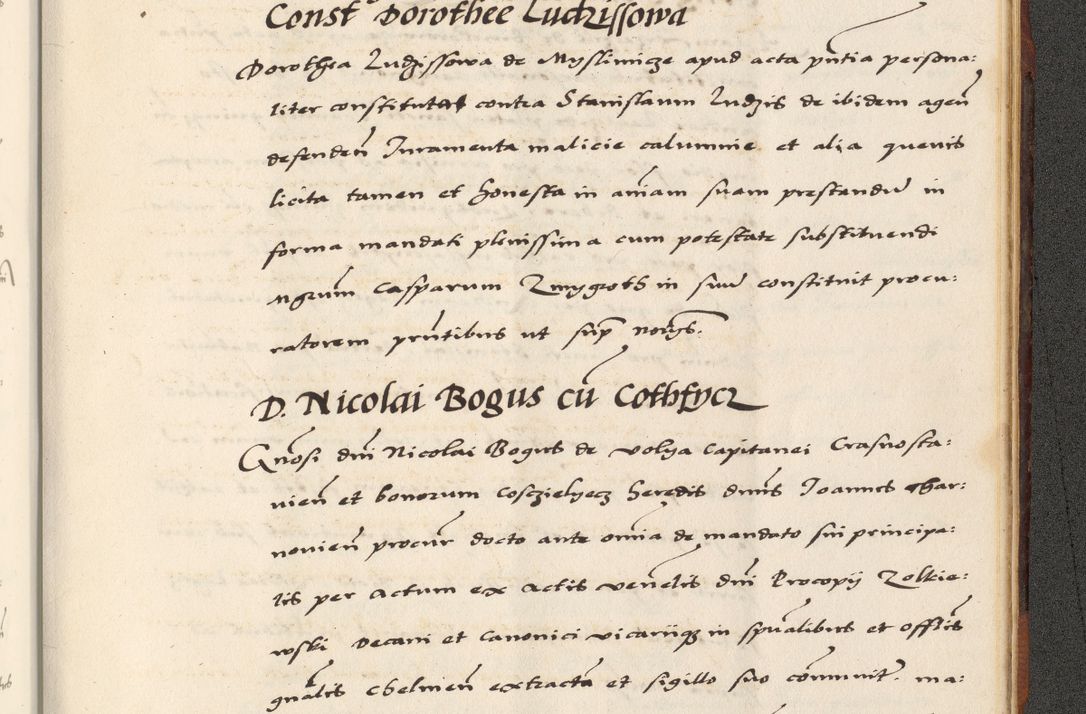 Const Dorothee Ludzissowa
Dorothea Ludzissowa de Myslimicze apud acta pntia persona:
liter constituta contra Stanislaum Ludzis de ibidem agen
defenden Iuramenta malicie calumnie et alia quevis
licita tamen et honesta in aniam suam prestandu in
forma mandati plenissima cum potestate substituendi
mgrum Casparum Zmygroth in suu constituit procu:
ratorem pntibus ut sup
D. Nicolai Bogus cu Cothfycz
Gnosi dni Nicolai Bogus de volya Capitanei Crasnosta:
vien et bonorum Cosczielyecz heredis dnus Ioannes Char:
novien procur docto ante omia de mandato sui principa:
lis per actum ex actis venelis dni Procopij Zolkie:
wski Decani et Canonici vicariiq in spualibus et offlis
gnalis Chelmen extracta et sigillo suo comunit. ma: